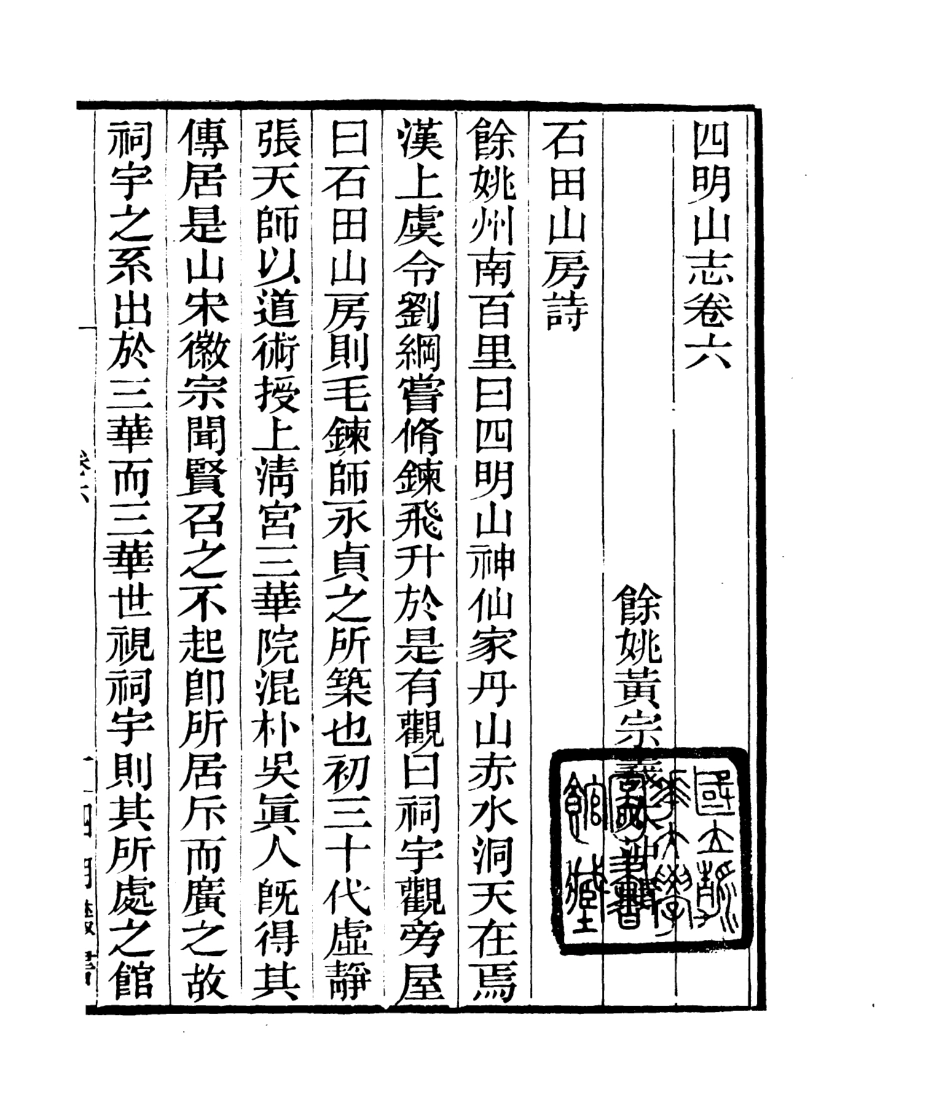 四明山志卷六
餘姚黃宗羲
石田山房詩
餘姚州南百里曰四明山神仙家丹山赤水洞天在焉
漢上虞令劉綱嘗脩鍊飛升於是有觀曰祠宇觀旁屋
曰石田山房則毛鍊師永貞之所築也初三十代虛靜
張天師以道術授上淸宮三華院混朴吳眞人旣得其
傳居是山宋徽宗聞賢召之不起卽所居斥而廣之故
祠宇之系出於三華而三華世視祠宇則其所處之館
卷六